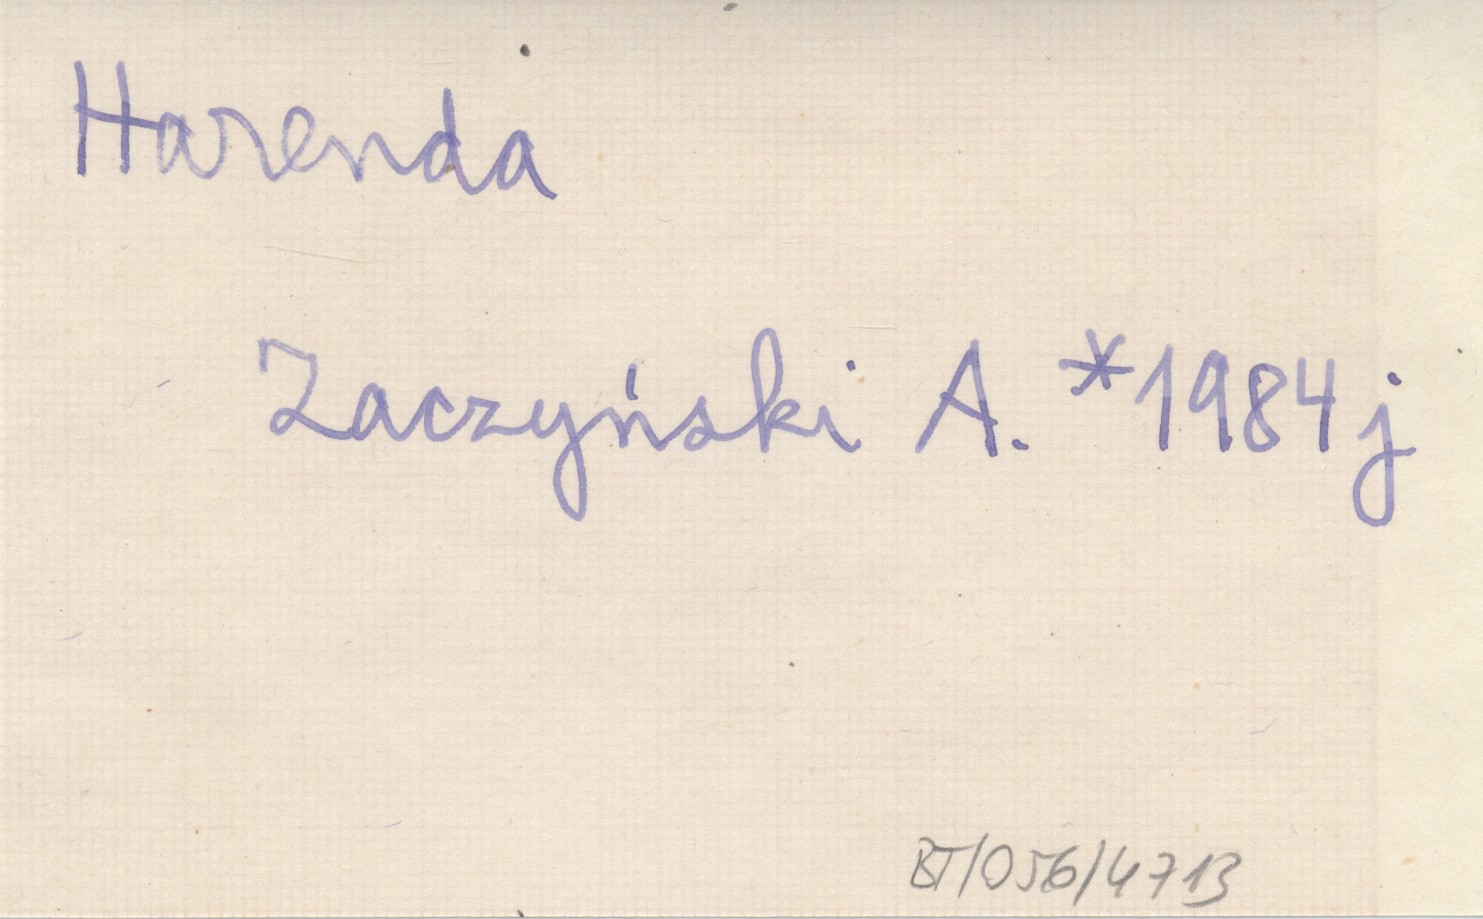 Harenda
Zaczyński A. *1984j
BT/056/4713